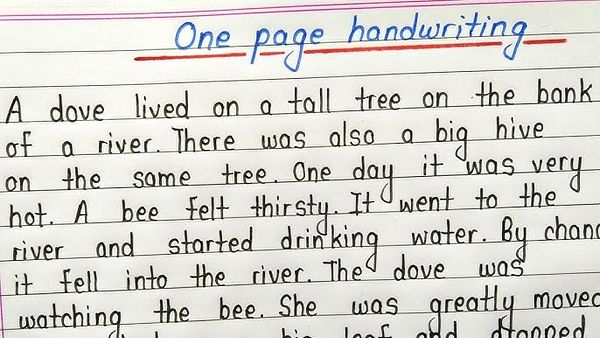 One page handwriting
A dove lived on a tall tree on the bank
of a river. There was also a big hive
on the same tree. One day it was very
hot. A bee felt thirsty. It went to the
river and started drinking water. By chanc
it fell into the river. The dove was
watching the bee. She was greatly moved
big leaf and dropped